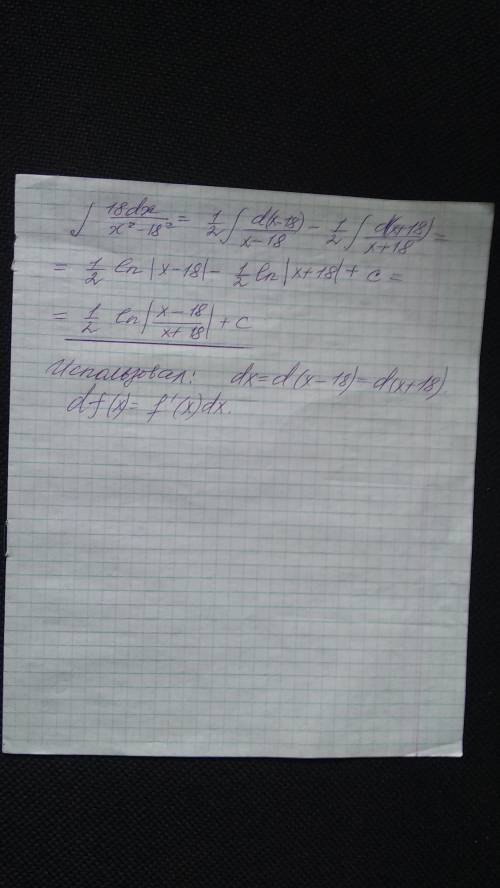 ∫ 18dx/(x²-18²) = 1/2 ∫ d(x-18)/(x-18) - 1/2 ∫ d(x+18)/(x+18) =
= 1/2 ln|x-18| - 1/2 ln|x+18| + c =
= 1/2 ln|(x-18)/(x+18)| + c
Использовал: dx = d(x-18) = d(x+18)
df(x) = f'(x)dx.